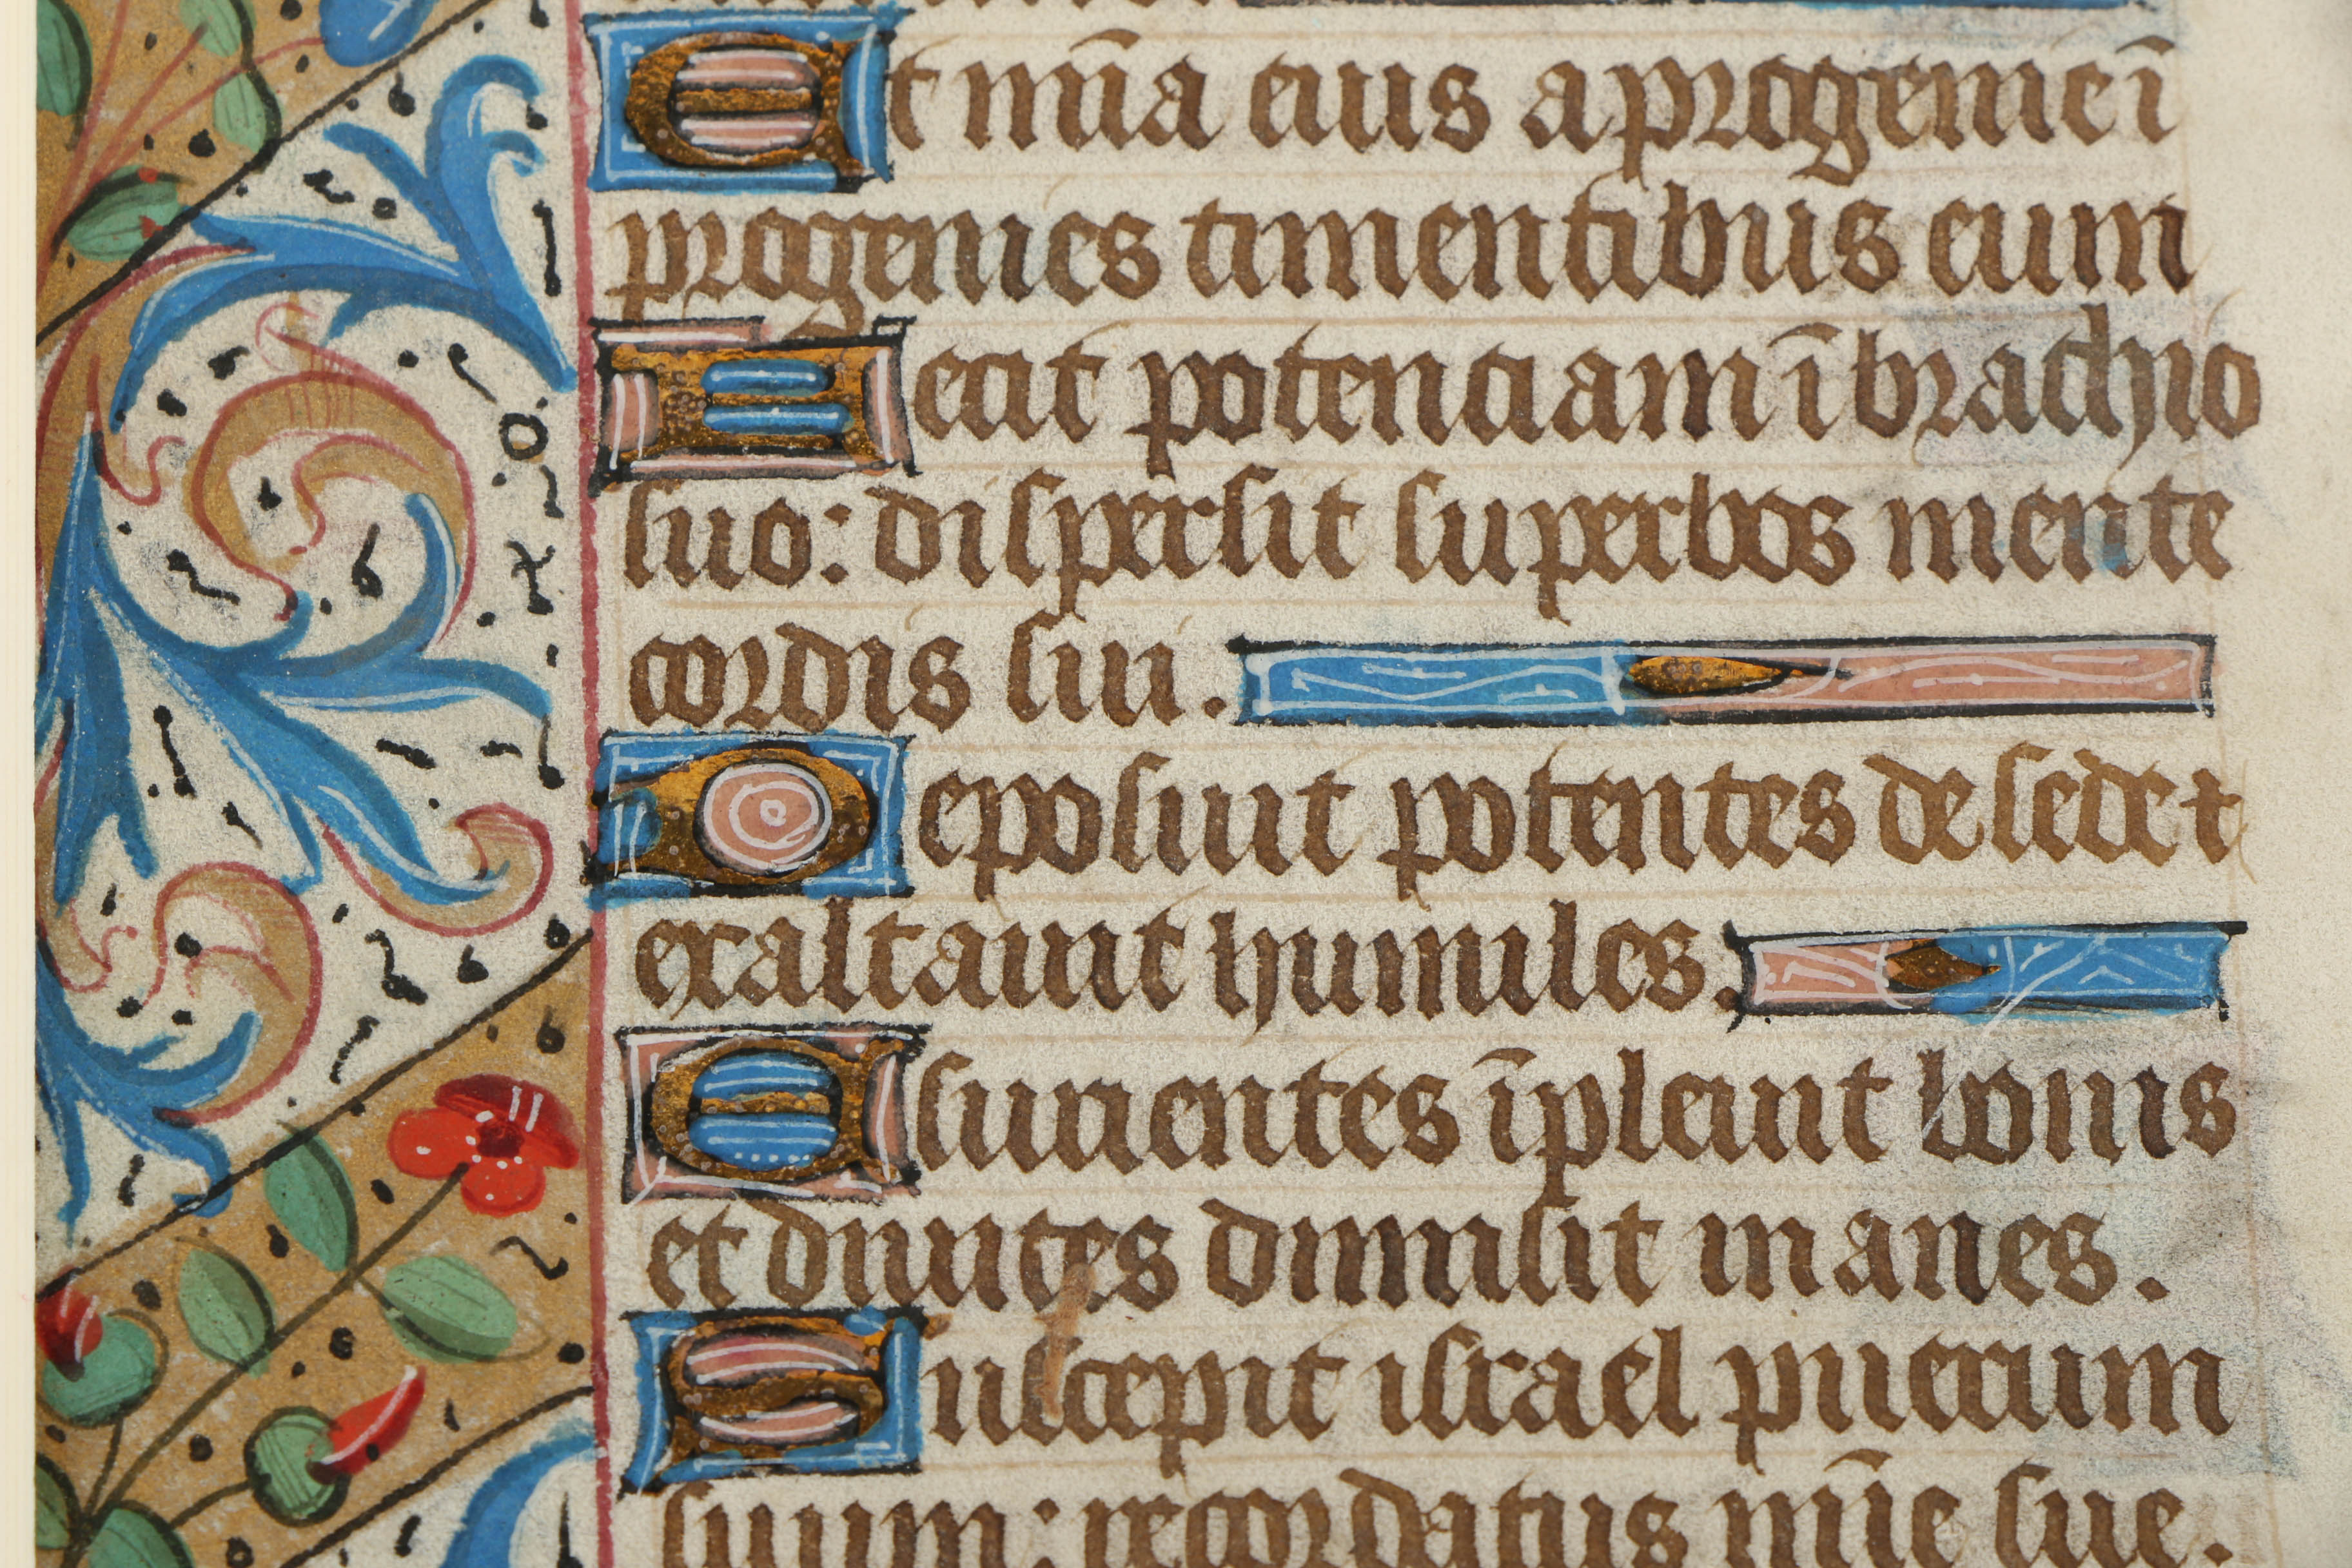 Et mīa eius a progenie ī
progenies timentibus eum
Fecit potenciam ī brachio
suo: dispersit superbos mente
cordis sui.
Deposuit potentes de sede ⁊
exaltauit humiles.
Esurientes īpleuit bonis
et diuites dimisit inanes.
Suscepit israel puerum
suum: recordatus mīe sue.